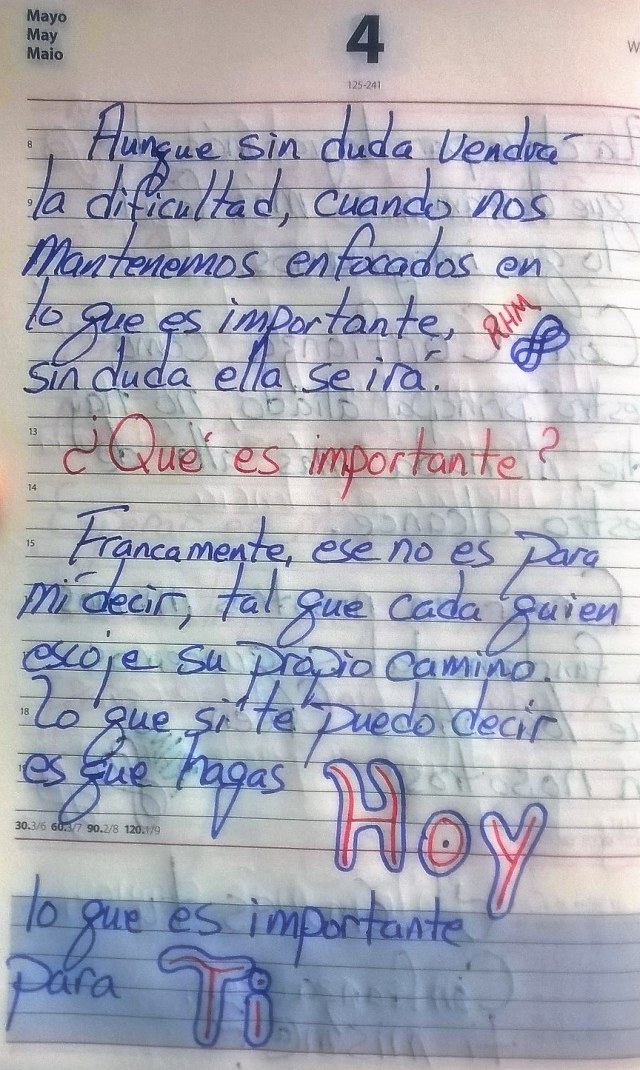 Mayo
May
Maio
4
125-241
W
8
Aunque sin duda vendrá
9
la dificultad, cuando nos
mantenemos enfocados en
lo que es importante, RHM
sin duda ella se irá.
13
¿Qué es importante?
14
15
Francamente, ese no es para
mí decir, tal que cada quien
escoje su propio camino.
18
Lo que sí te puedo decir
es que hagas HOY
30.3/6 60.3/7 90.2/8 120.1/9
lo que es importante
para Ti